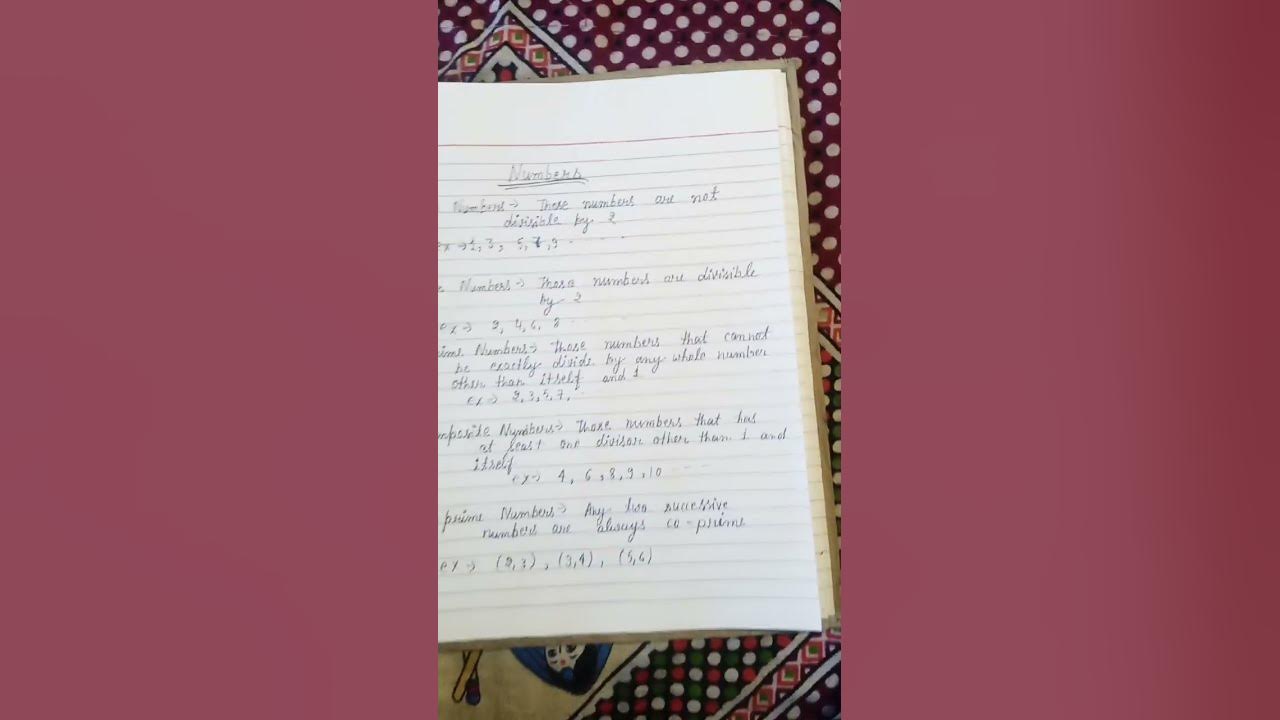 Numbers
Numbers → These numbers are not
divisible by 2
ex → 1, 3, 5, 7, 9 - - - -
Numbers → Those numbers are divisible
by 2
ex → 2, 4, 6, 8 - - -
ime Numbers → Those numbers that cannot
be exactly divide by any whole number
other than itself and 1
ex → 2, 3, 5, 7,
mposite Numbers → Those numbers that has
at least one divisor other than 1 and
itself
ex → 4, 6, 8, 9, 10 - - -
prime Numbers → Any two successive
numbers are always co-prime
ex → (2,3), (3,4), (5,6)